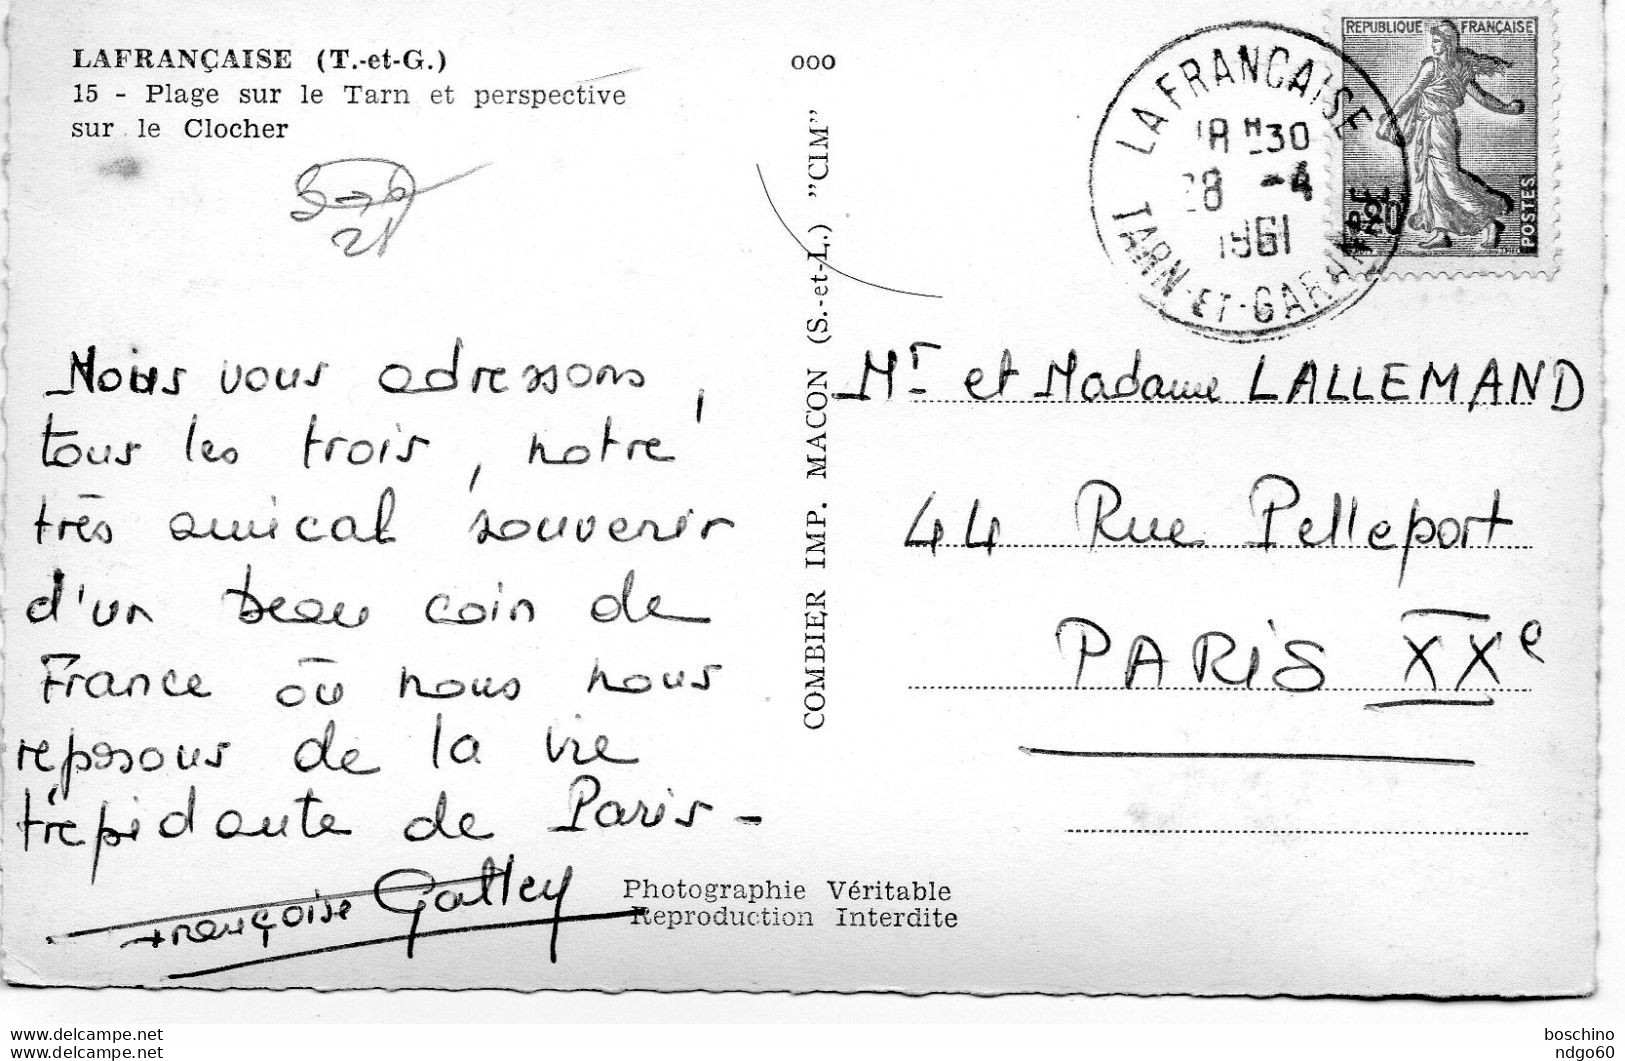 LAFRANÇAISE (T.-et-G.)
15 - Plage sur le Tarn et perspective
sur le Clocher
000
REPUBLIQUE FRANÇAISE
0,20
POSTES
LAFRANCAISE
18 H 30
28 -4
1961
TARN-ET-GARONNE
21
Nous vous adressons,
tous les trois, notre
très amical souvenir
d'un beau coin de
France où nous nous
reposons de la vie
trépidante de Paris -
Françoise Galley
COMBIER IMP. MACON (S.-et-L.) "CIM"
Mr et Madame LALLEMAND
44 Rue Pelleport
PARIS XXe
Photographie Véritable
Reproduction Interdite
delcampe.net
delcampe.net
boschino
ndgo60